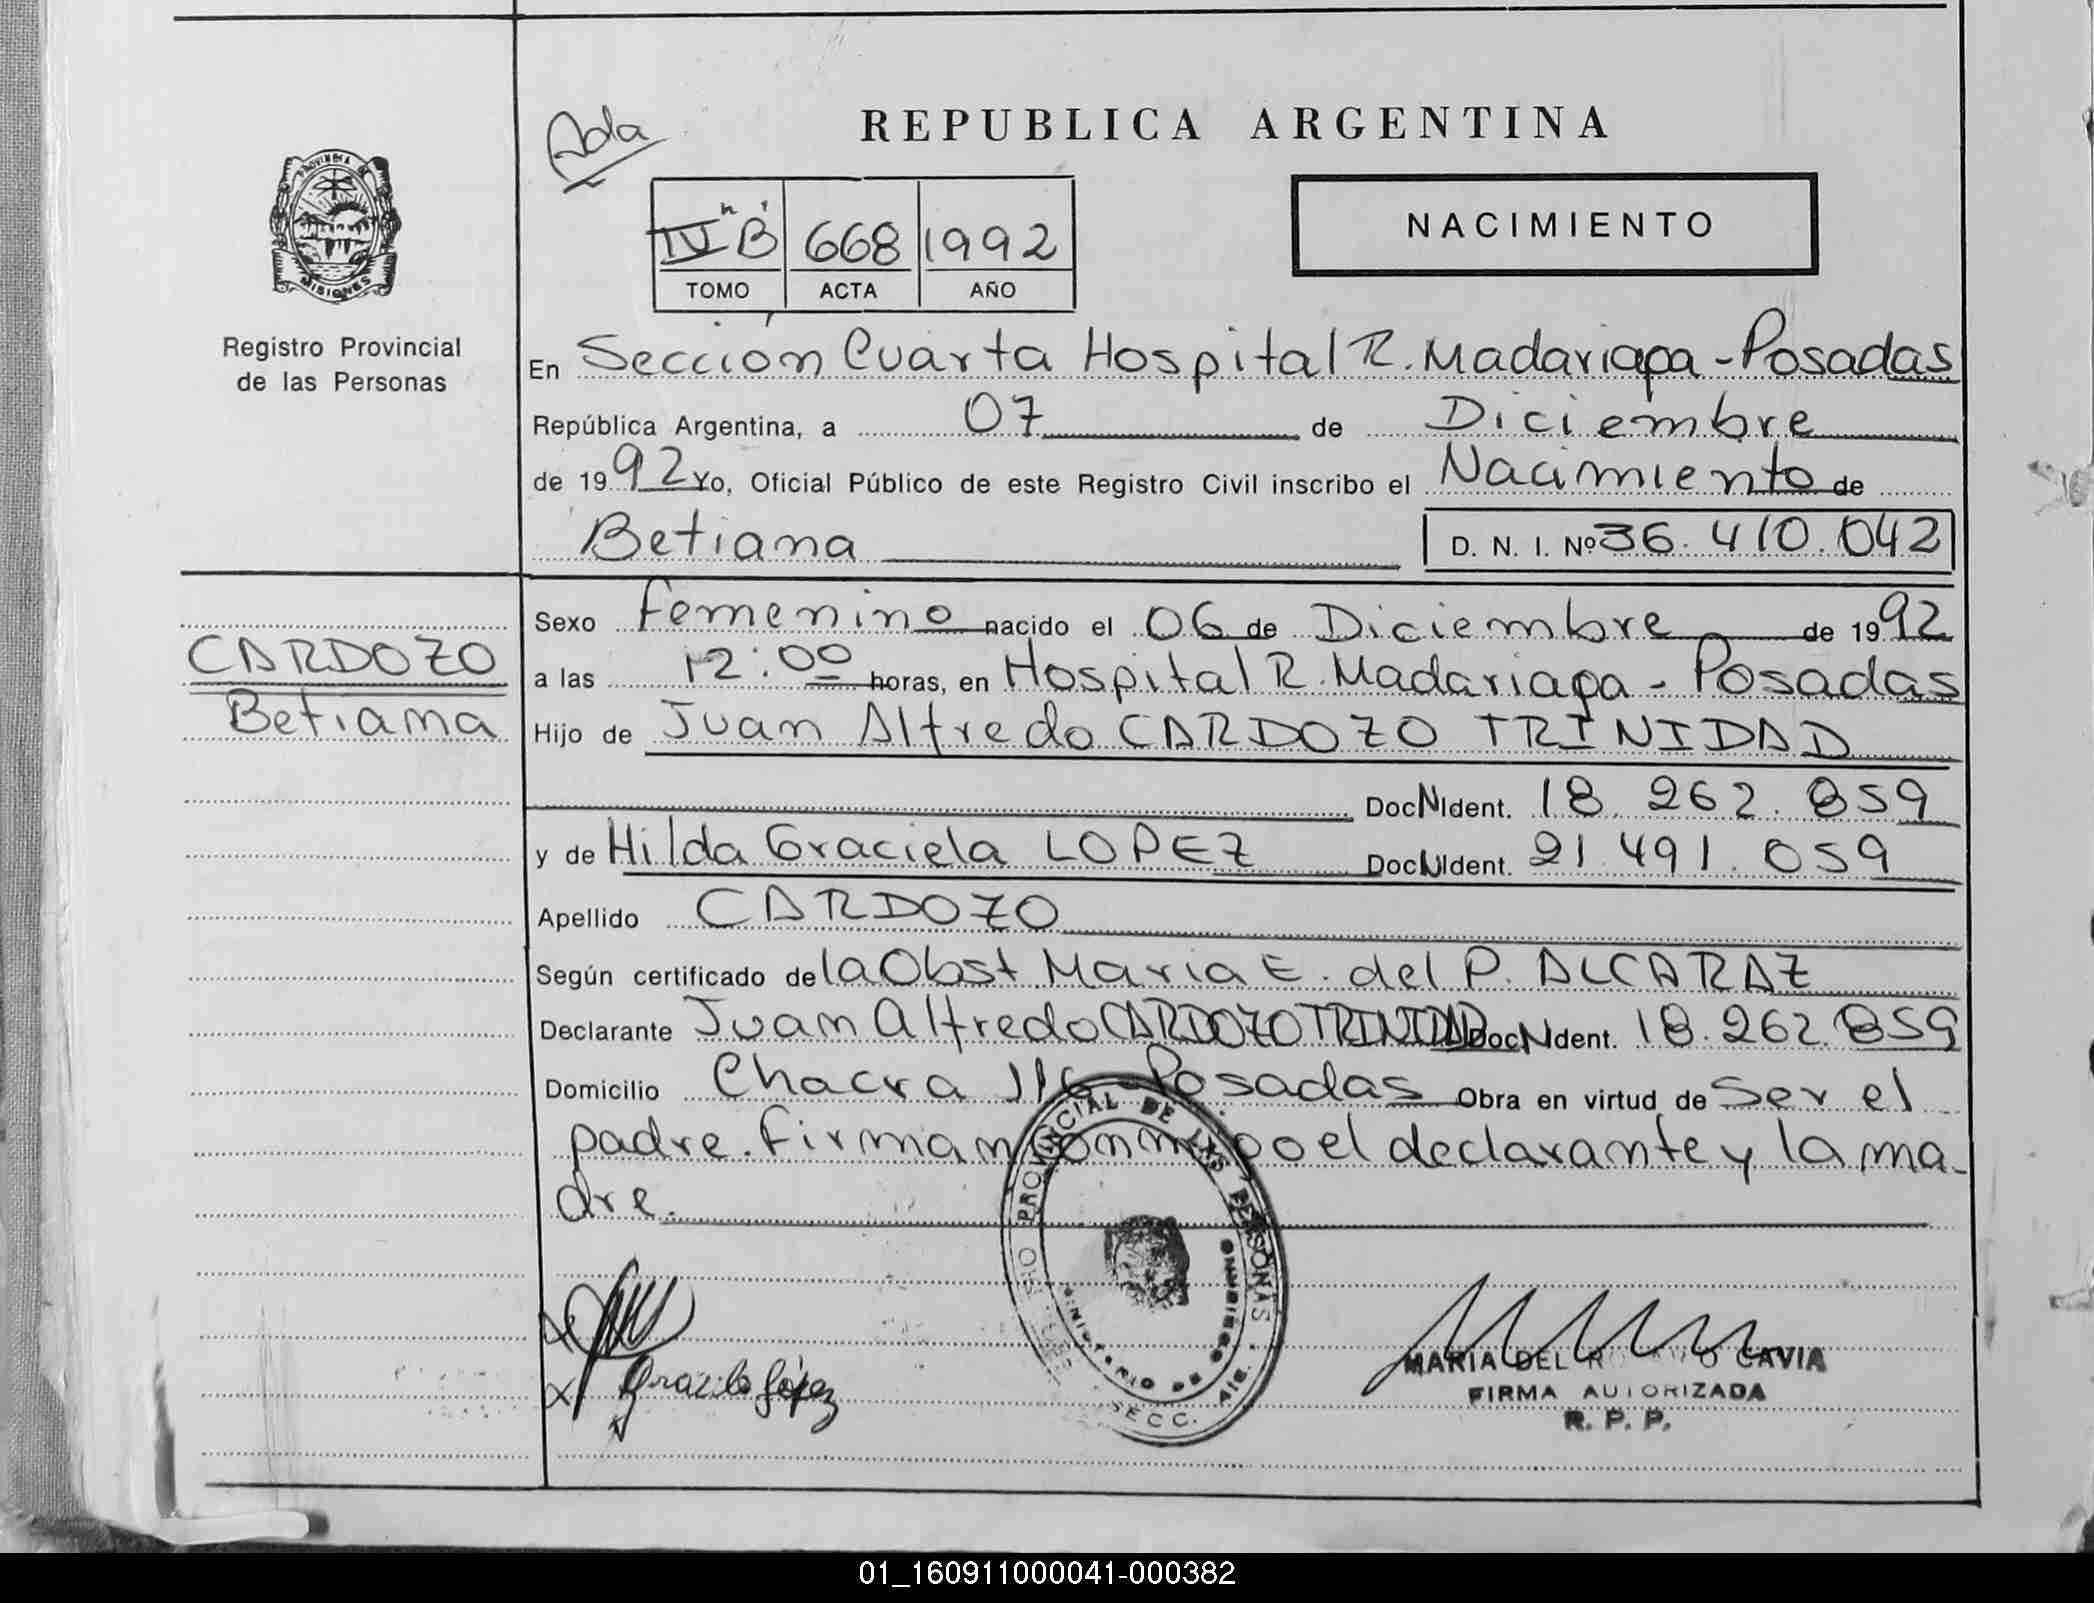 Ada
REPUBLICA ARGENTINA
PROVINCIA
MISIONES
Registro Provincial
de las Personas
IV "B" 668 1992
TOMO ACTA AÑO
NACIMIENTO
En Sección Cuarta Hospital R. Madariaga - Posadas
República Argentina, a 07 de Diciembre
de 1992 Yo, Oficial Público de este Registro Civil inscribo el Nacimiento de
Betiana D. N. I. Nº 36.410.042
CARDOZO
Betiana
Sexo Femenino nacido el 06 de Diciembre de 1992
a las 12:00 horas, en Hospital R. Madariaga - Posadas
Hijo de Juan Alfredo CARDOZO TRINIDAD
Doc N Ident. 18.262.859
y de Hilda Graciela LOPEZ Doc N Ident. 21.491.059
Apellido CARDOZO
Según certificado de la Obst Maria E. del P. ALCARAZ
Declarante Juan Alfredo CARDOZO TRINIDAD Doc N Ident. 18.262.859
Domicilio Chacra 116 - Posadas Obra en virtud de Ser el
padre. Firman conmigo el declarante y la ma-
dre.
PROVINCIAL DE LAS PERSONAS
MINISTERIO DE GOBIERNO
SECC. 4ta.
Graciela López
MARIA DEL ROSARIO CAVIA
FIRMA AUTORIZADA
R. P. P.
01_160911000041-000382